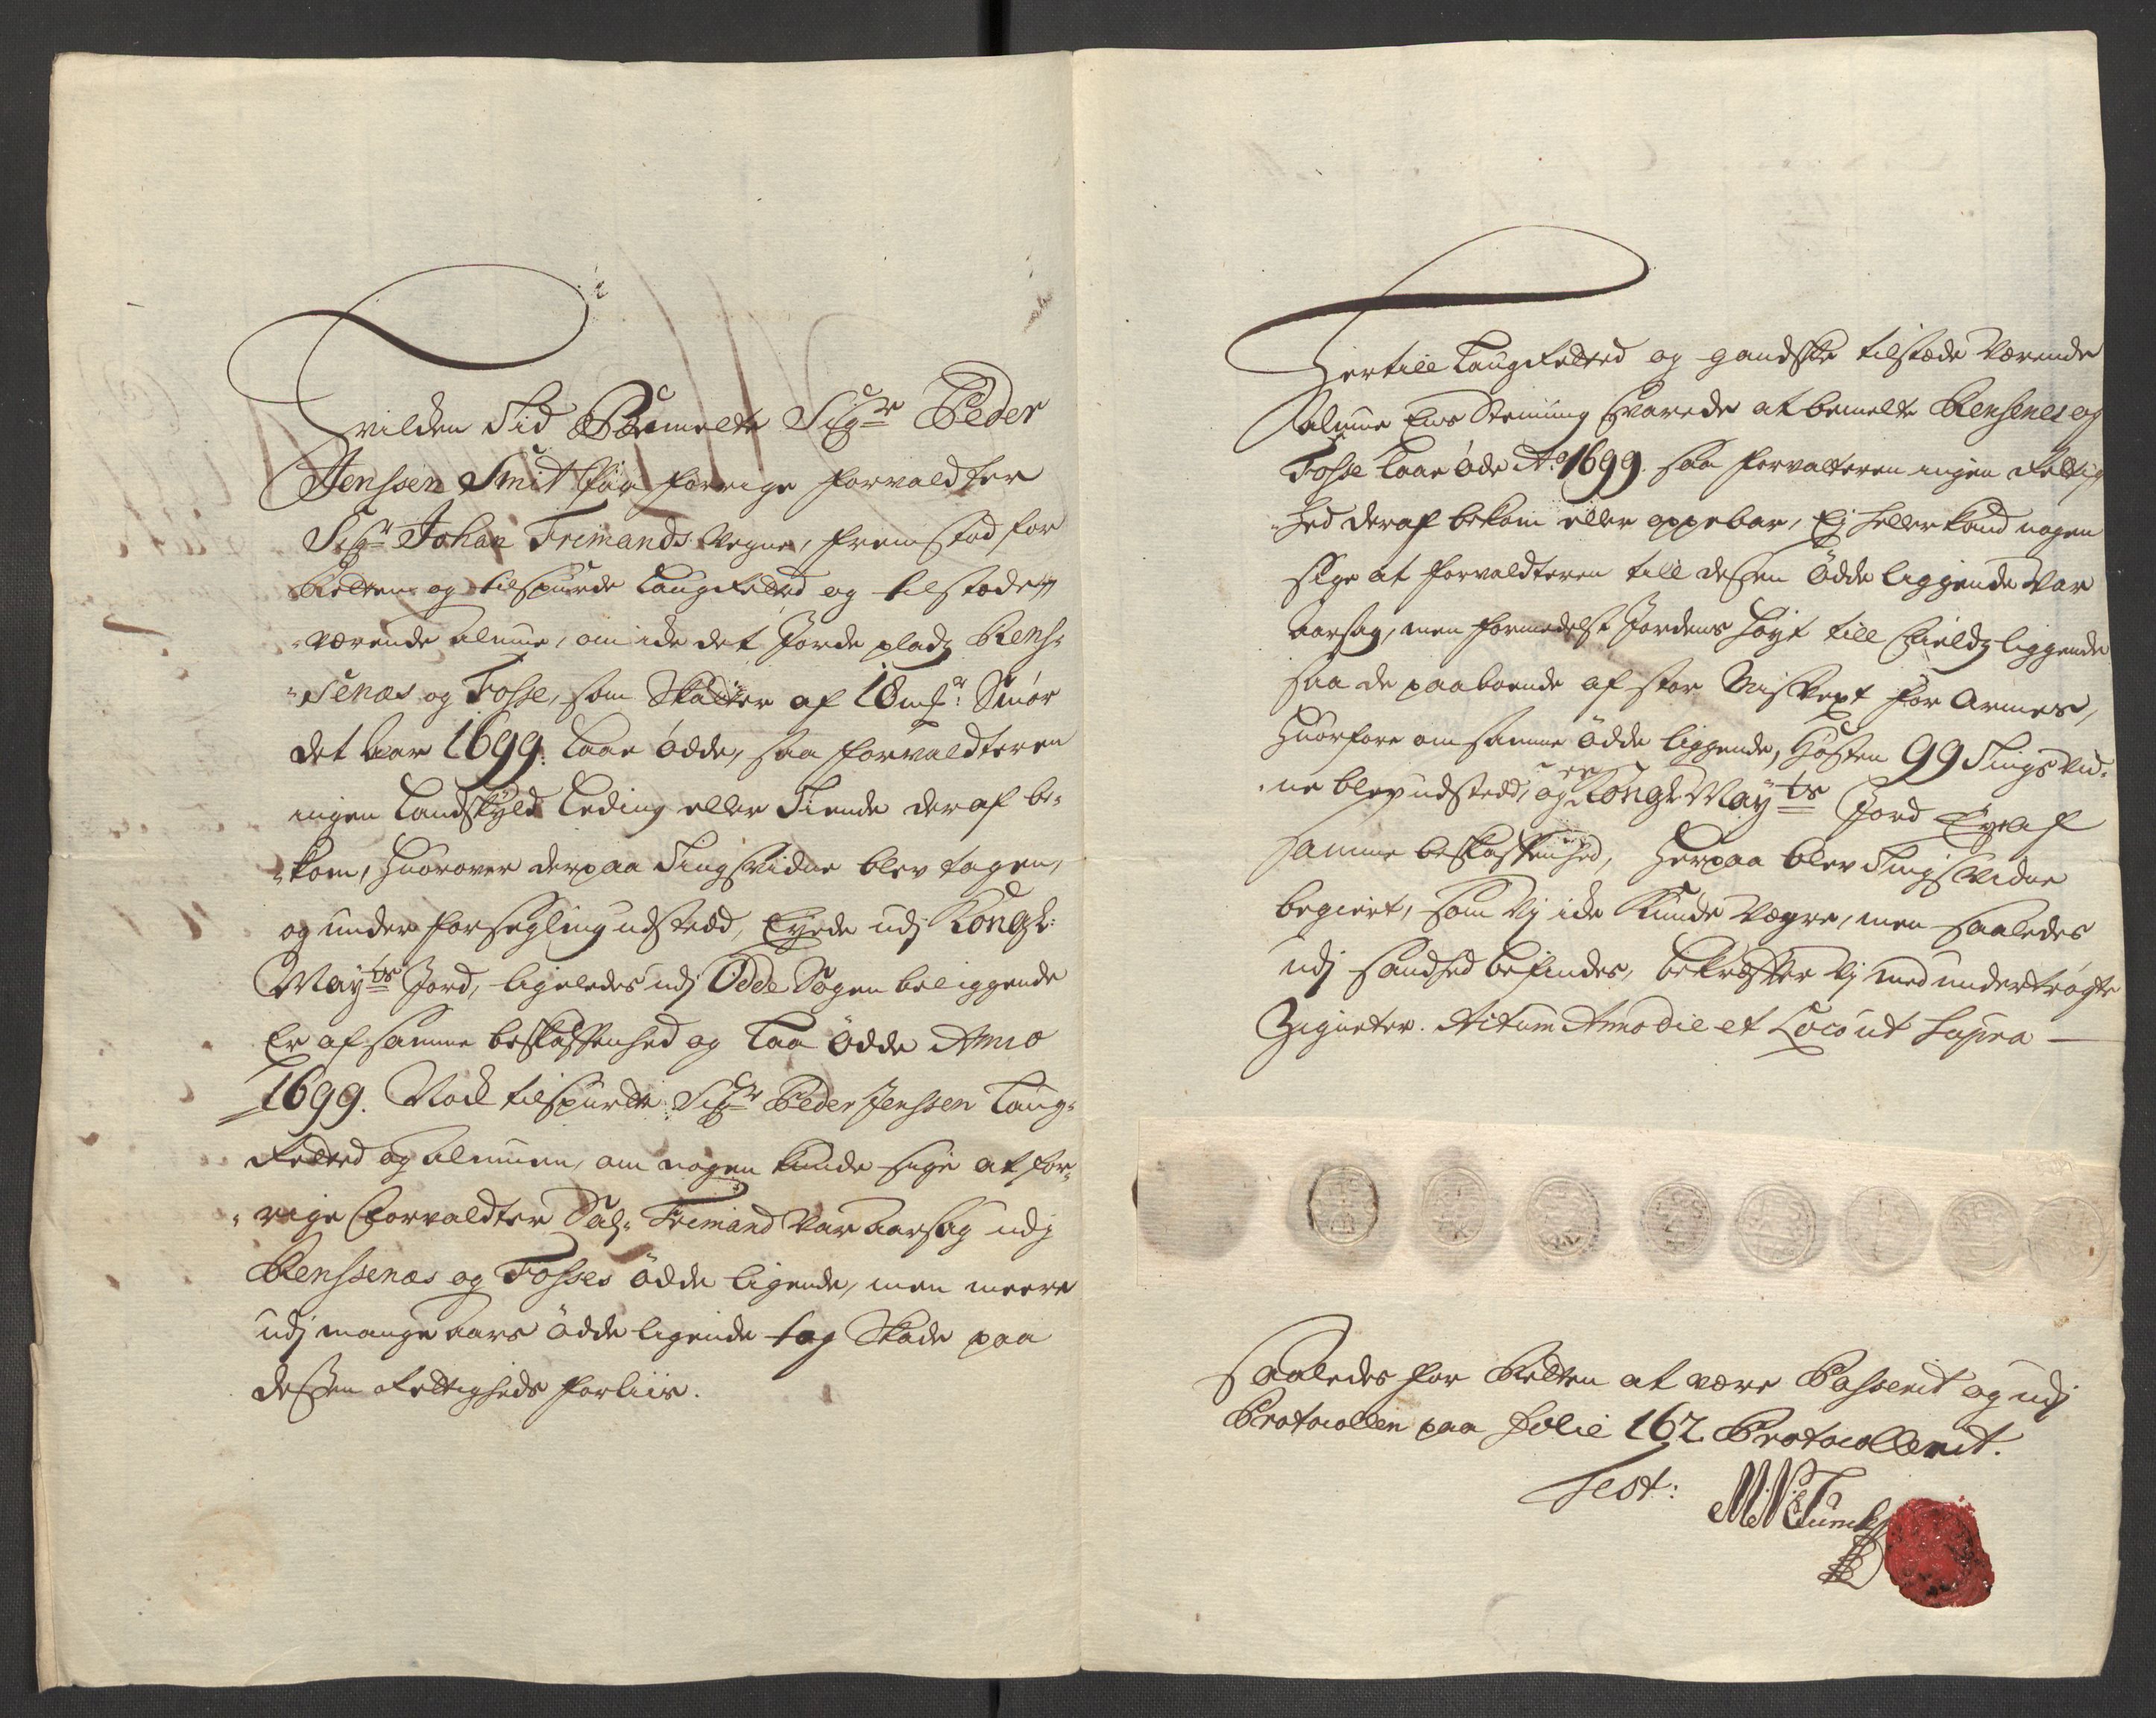 Hvilden Tid Bemelte Sigr Peder
Jenssen Smit paa forrige forvaldter
Sigr Johan Frimands Vegne, fremstod for
Retten og tilspurde Laugretted og tilstæde
værende almue, om icke det Jorde pladz Rens-
senæs og Fosse, som Skatter af 18 mkr Smör
det Aar 1699. Laae ödde, saa forvaldteren
ingen Landskyld Leding eller Tiende deraf be-
kom, huorover derpaa Tingsvidne blev tagen,
og under forsegling udstedd, Eyede udj Kongl:
Mayts Jord, ligeledes udj Odde Sogen beliggende
Er af samme beskaffenhed og Laa ödde Anno
1699. Nock tilspurte Sigr Peder Jenssen Laug-
retted og Almuen, om nogen kunde sige at for-
rige forvaldter Sal: Frimand var aarsag udj
Renssenæs og Fosses ödde ligende, men meere
udj mange aars ödde ligende tog Skade paa
dessen Rettigheds forliis.
Hertill Laugretted og gandske tilstæde værende
almue Eens Stemmig Svarede at bemelte Rensenes og
Fosse Laae öde Ao 1699. saa forvalteren ingen Rettig
hed deraf bekom eller oppebar, Ej heller kand nogen
sige at forvaldteren till dessen ödde liggende var
aarsag, men formedelst Jordens höyt till fields liggende
saa de paaboende af stor Misvext for armes,
huorfore om samme ödde liggende, Hösten 99 Tings vid-
ne blev udstedd, og er Kongl Mayts Jord Eye af
samme beskaffenhed, Herpaa blev Tingsvidne
begiert, som Vj icke kunde Vegre, men saaledes
udj sandhed befindes, bekræfter Vj med undertrögte
Zigneter. Actum Anno die et Loco ut supra
Saaledes for Retten at være Passerit og udj
Protocollen paa Folie 162. Protocollerit.
Test: